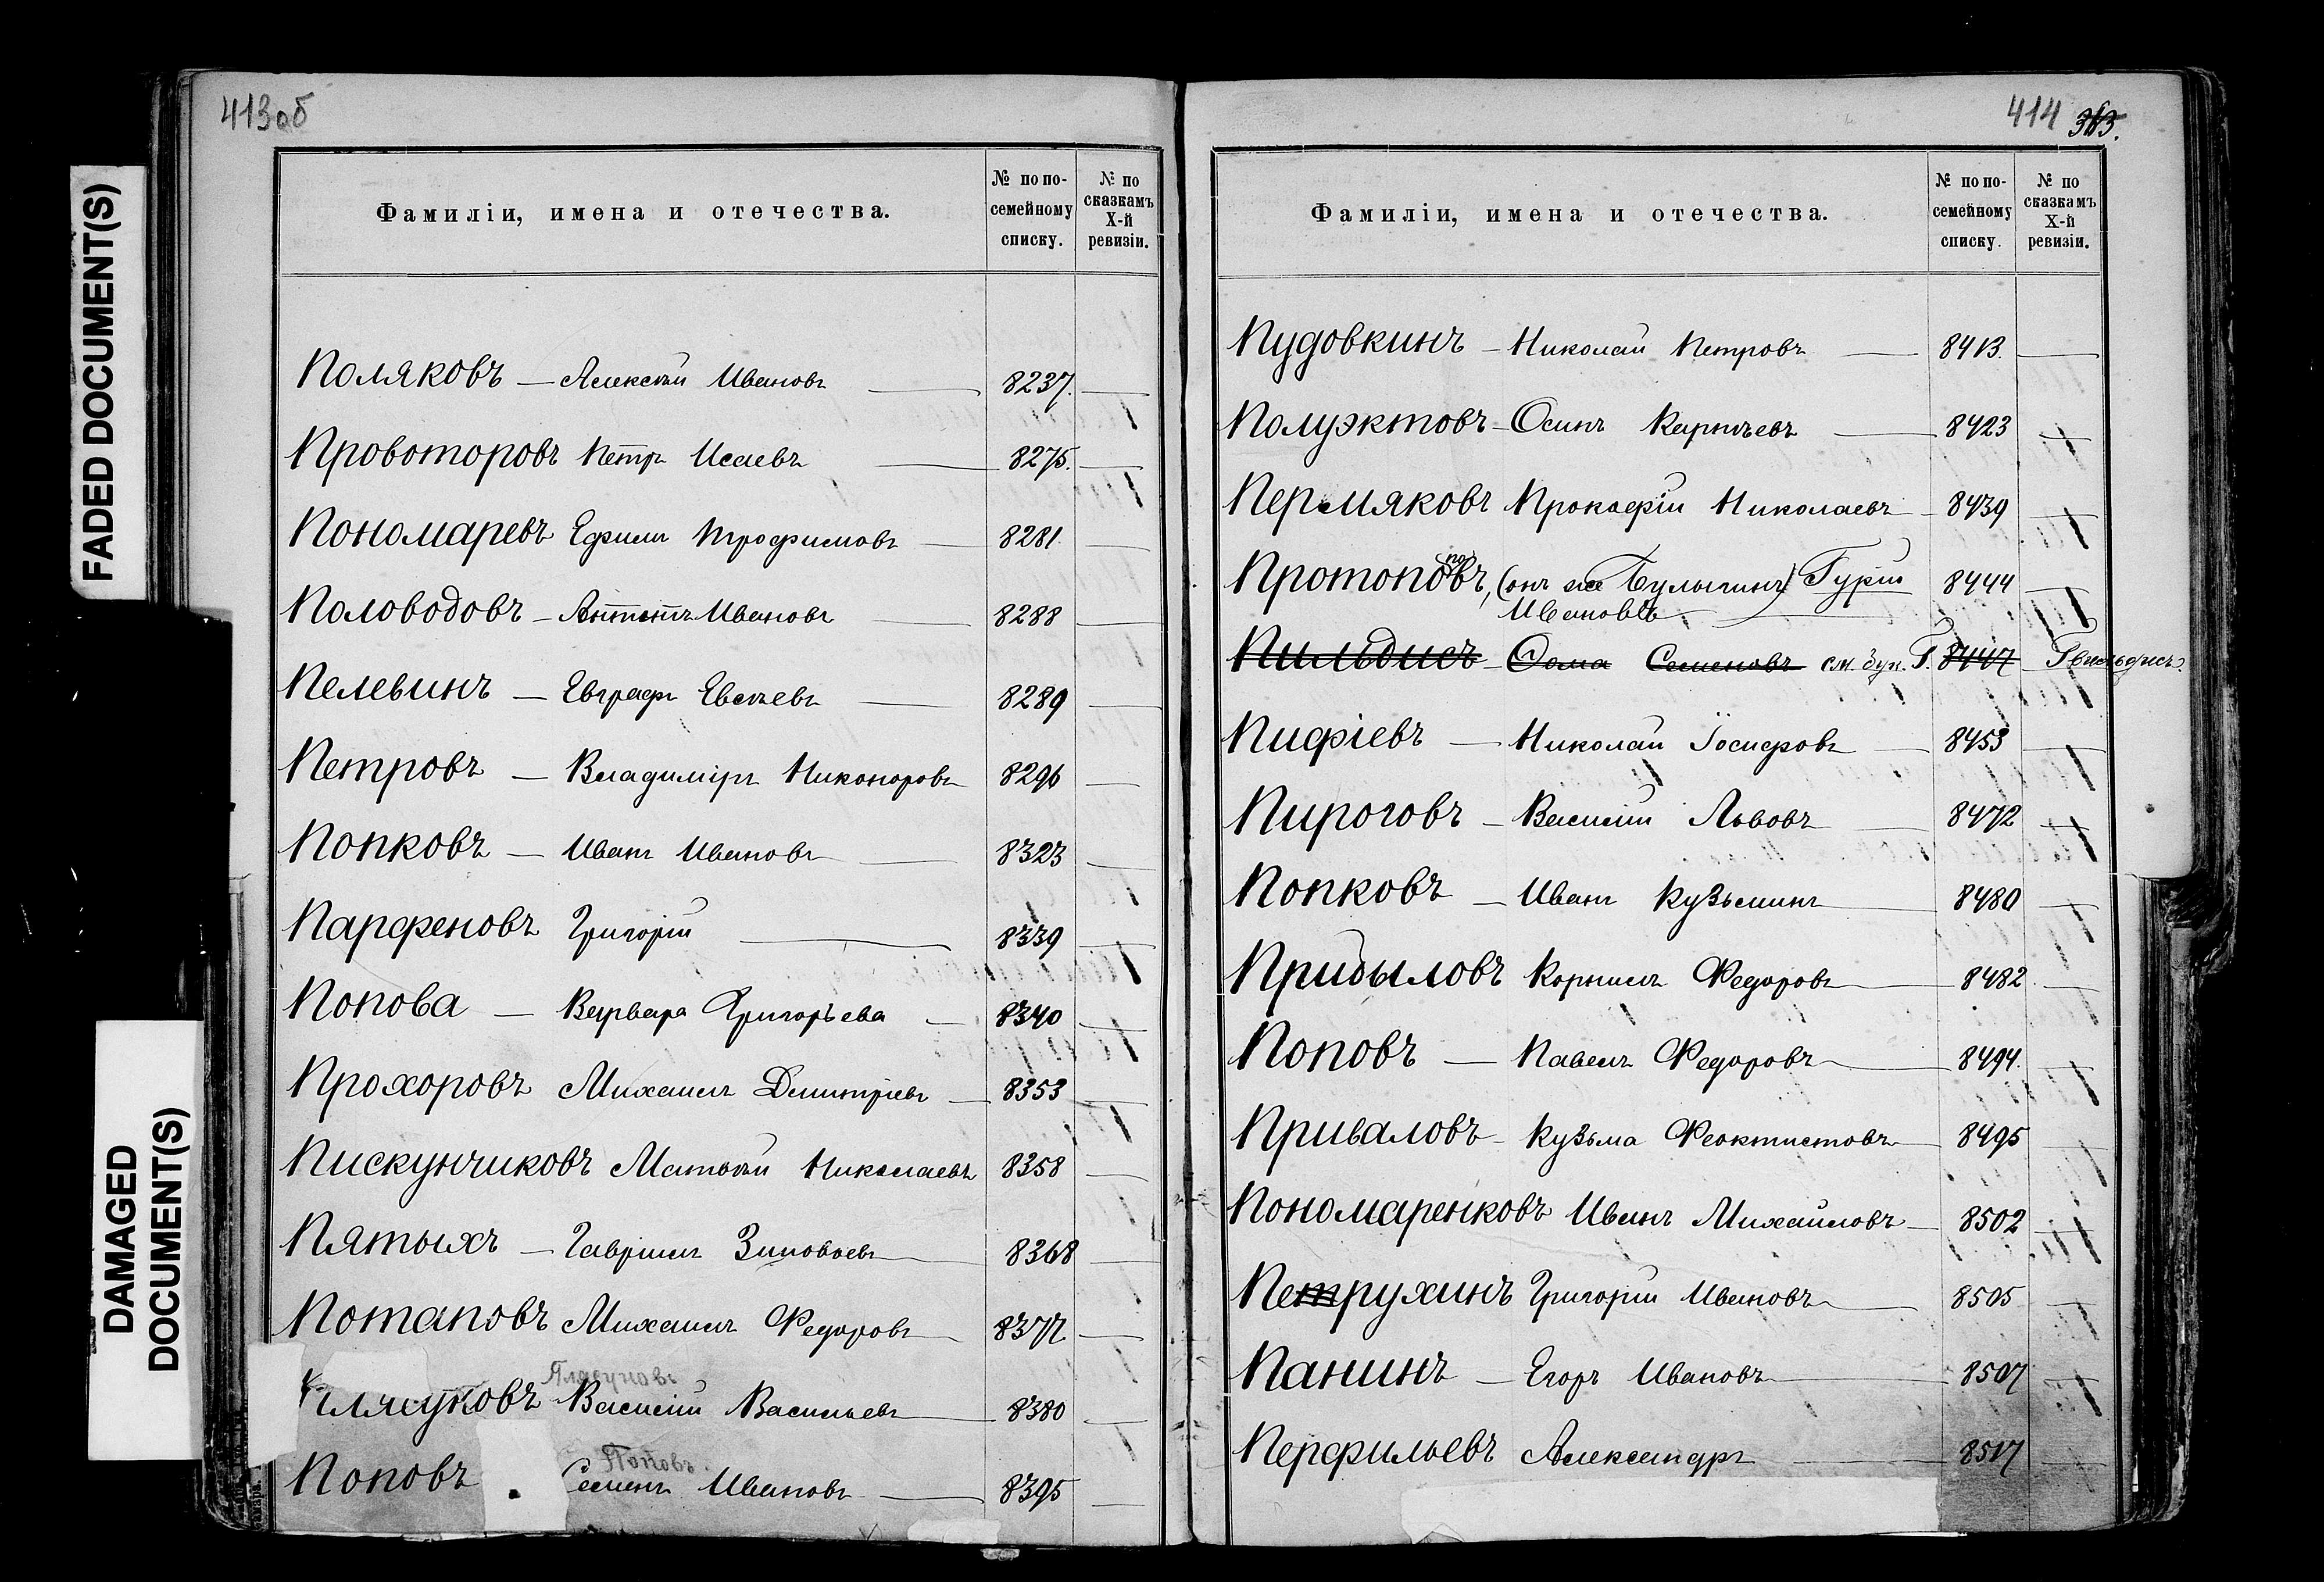 413об
Фамиліи, имена и отечества.
№ по по-
семейному
списку.
№ по
сказкамъ
X-й
ревизіи.
Поляковъ — Алексѣй Ивановъ — 8237. —
Провоторовъ Петръ Исаевъ — 8275. —
Пономаревъ Ефимъ Трофимовъ — 8281. —
Половодовъ — Антонъ Ивановъ — 8288 —
Пелевинъ — Евграфъ Евсѣевъ — 8289 —
Петровъ — Владиміръ Никоноровъ 8296 —
Попковъ — Иванъ Ивановъ — 8323 —
Парфеновъ Григорій — 8339 —
Попова — Варвара Григорьева — 8340 —
Прохоровъ Михаилъ Дмитріевъ — 8353 —
Пискунчиковъ Матвѣй Николаевъ 8358 —
Пятыхъ — Гавріилъ Зиновьевъ — 8368 —
Потаповъ Михаилъ Федоровъ — 8377 —
Плясуновъ
Плясуновъ Василій Васильевъ — 8380 —
Поповъ
Поповъ Семенъ Ивановъ — 8395 —
414 313.
Фамиліи, имена и отечества.
№ по по-
семейному
списку.
№ по
сказкамъ
X-й
ревизіи.
Пудовкинъ — Николай Петровъ — 8413. —
Полуэктовъ — Осипъ Карпѣевъ — 8423 —
Пермяковъ Прокофій Николаевъ — 8439 —
по
Протоповъ, (онъ же Булыгинъ) Гурій 8444 —
Ивановъ —
Пильдисъ — Фома Семеновъ см. бук. Г. 8447 Гвильдисъ.
Пифіевъ — Николай Іосифовъ — 8453 —
Пироговъ — Василій Львовъ — 8472 —
Попковъ — Иванъ Кузьминъ — 8480 —
Прибыловъ Корнилъ Федоровъ — 8482 —
Поповъ — Павелъ Федоровъ — 8494. —
Приваловъ — Кузьма Феоктистовъ — 8495 —
Пономаренковъ Иванъ Михайловъ — 8502 —
Петрухинъ Григорій Ивановъ — 8505 —
Панинъ — Егоръ Ивановъ — 8507 —
Перфильевъ Александръ — 8517 —
FADED DOCUMENT(S)
DAMAGED
DOCUMENT(S)